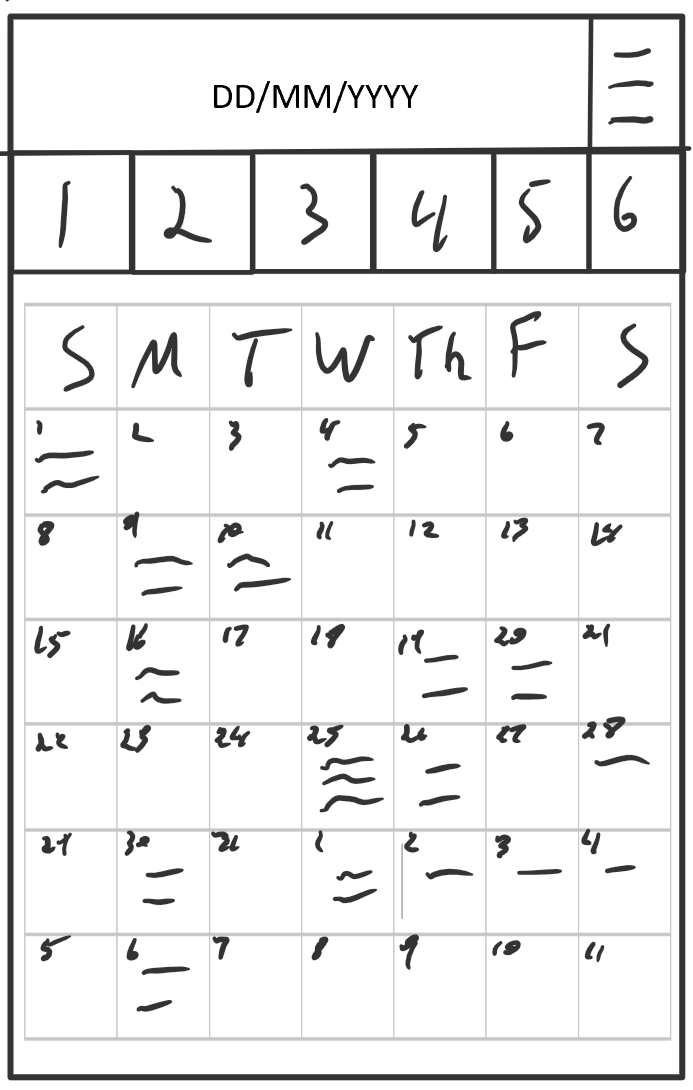 DD/MM/YYYY
1 2 3 4 5 6
S M T W Th F S
1 2 3 4 5 6 7
8 9 10 11 12 13 14
15 16 17 18 19 20 21
22 23 24 25 26 27 28
29 30 31 1 2 3 4
5 6 7 8 9 10 11